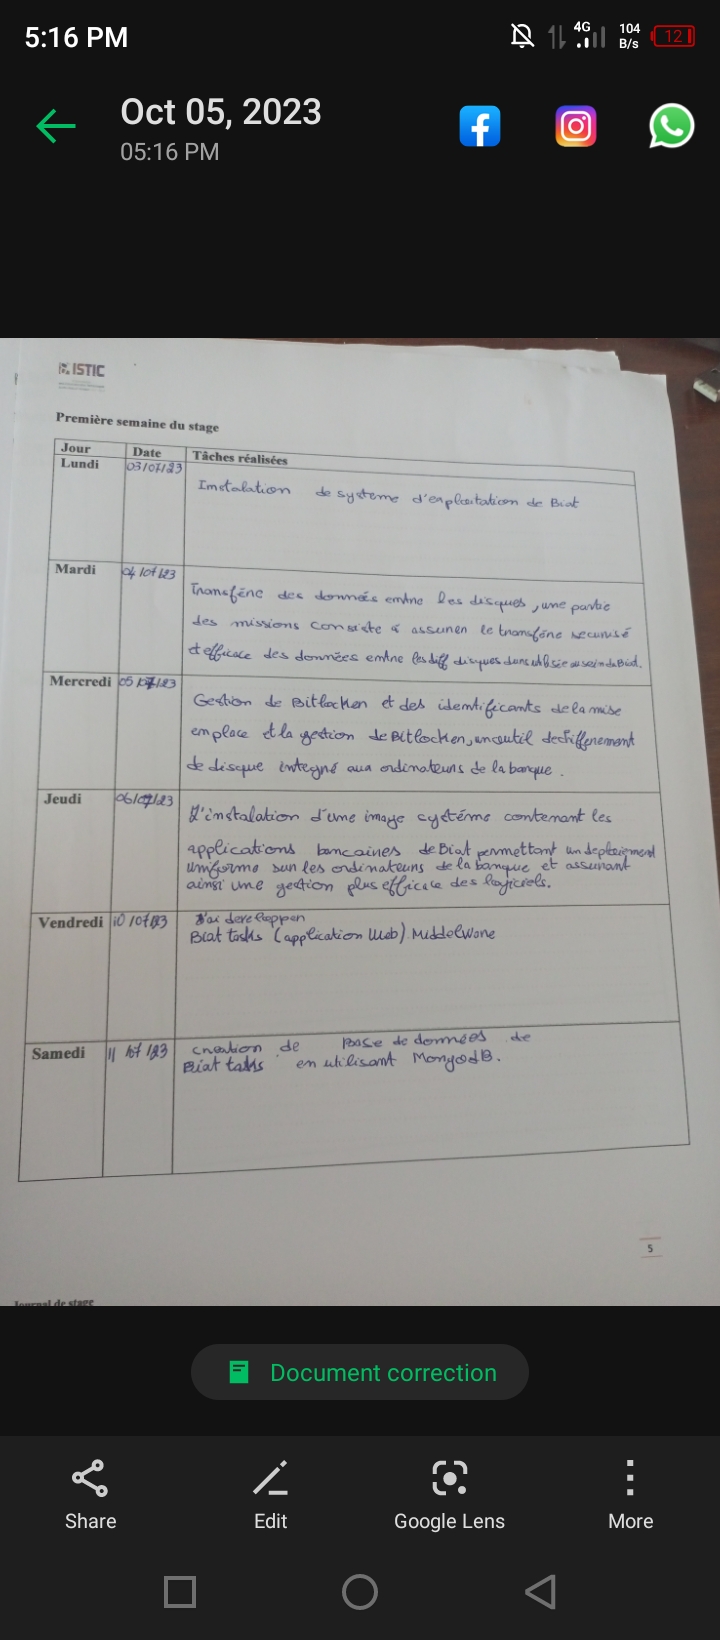 5:16 PM
4G
104
B/s
12
Oct 05, 2023
05:16 PM
ISTIC
Première semaine du stage
Jour Date Tâches réalisées
Lundi 03/07/23
Instalation de systeme d'exploitation de Biat
Mardi 04/07/23
Transfére des données entre les disques, une partie
des missions consiste à assurer le transfére securisé
et efficace des données entre les diff disques durs utilisée au sein de Biat.
Mercredi 05/07/23
Gestion de Bitlocker et des identificants de la mise
en place et la gestion de Bitlocker, un outil de chiffrement
de disque integré aux ordinateurs de la banque.
Jeudi 06/07/23
L'instalation d'une image système contenant les
applications bancaines de Biat permettant un deploiement
uniforme sur les ordinateurs de la banque et assurant
ainsi une gestion plus efficace des logiciels.
Vendredi 10/07/23
J'ai developper
Biat tasks (application Web) Middelware
Samedi 11/07/23
creation de base de données de
Biat tasks en utilisant MongodB.
5
Journal de stage
Document correction
Share Edit Google Lens More